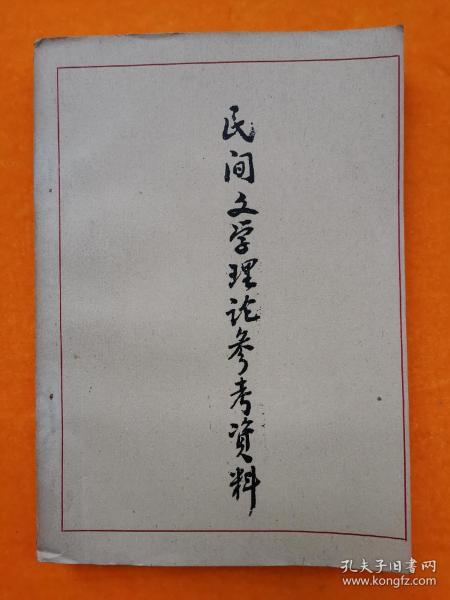 民间文学理论参考資料
孔夫子旧书网
www.kongfz.com